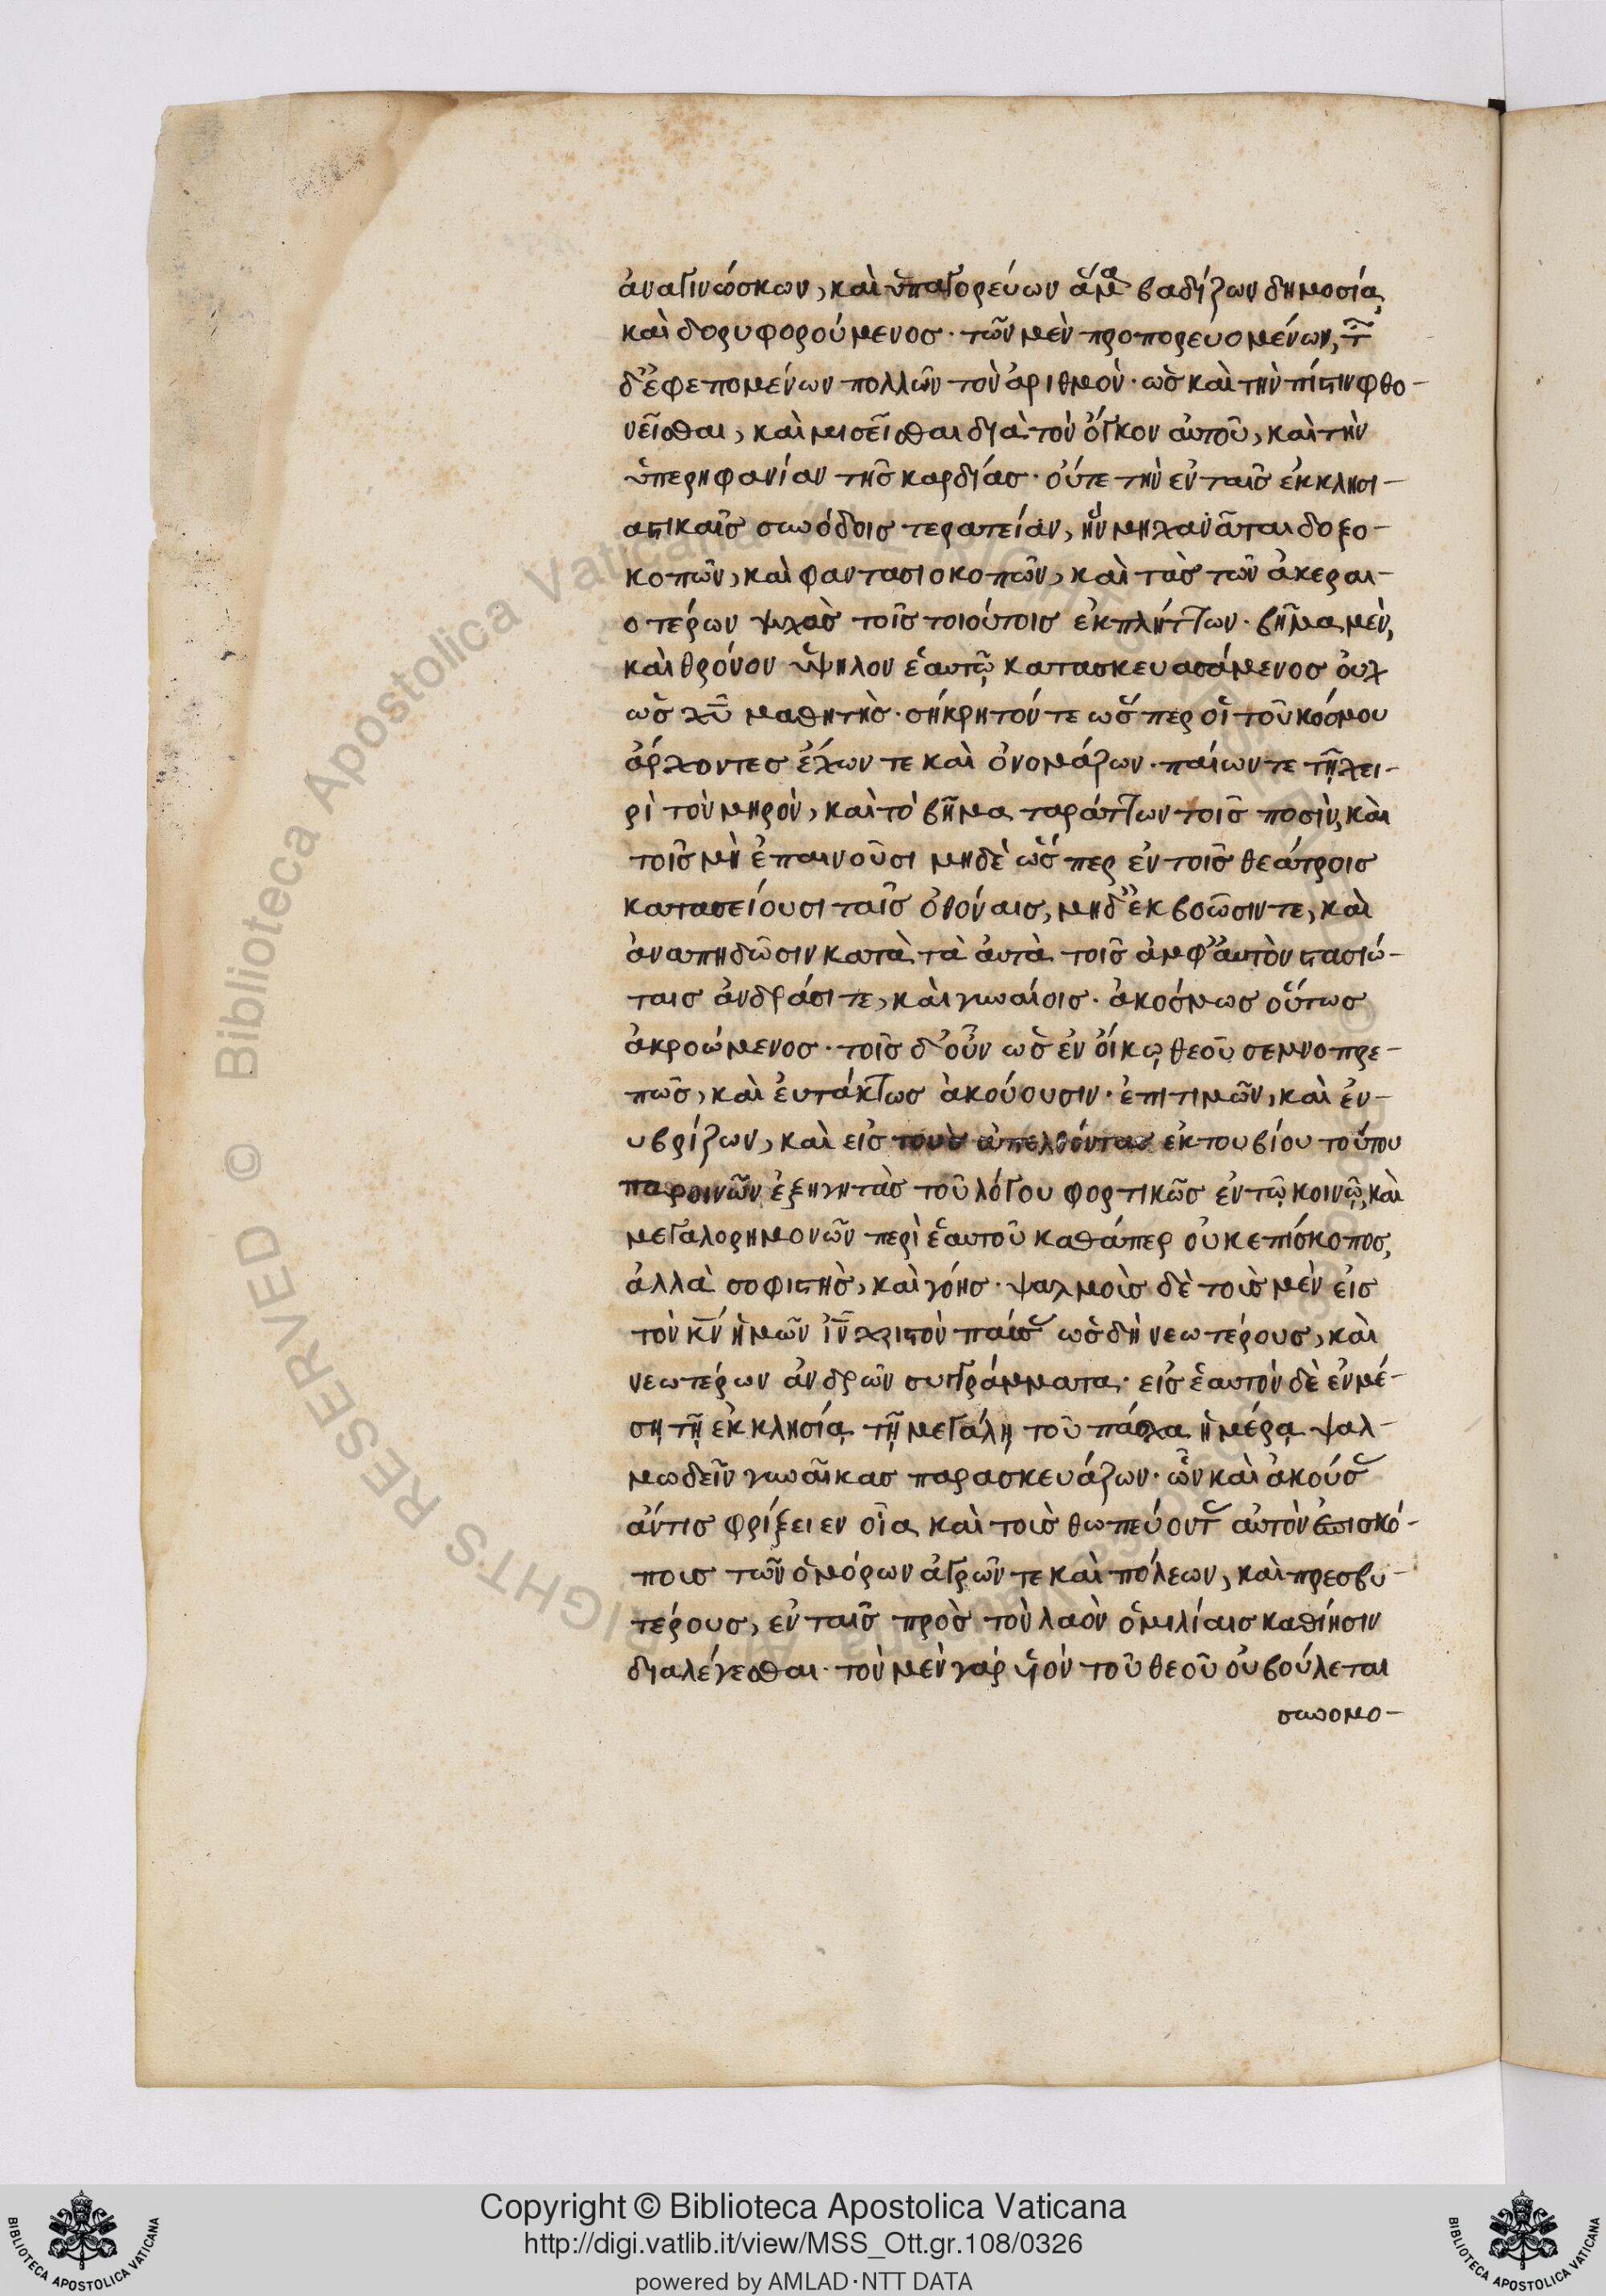 ἀναγινώσκων, καὶ ὑπαγορεύων ἅμα βαδίζων δημοσίᾳ
καὶ δορυφορούμενος· τῶν μὲν προπορευομένων, τ῀
δ' ἐφεπομένων πολλῶν τὸν ἀριθμὸν· ὡς καὶ τὴν πίστιν φθο-
νεῖσθαι, καὶ μισεῖσθαι διὰ τὸν ὄγκον αὐτοῦ, καὶ τὴν
ὑπερηφανίαν τῆς καρδίας· οὔτε τὴν ἐν ταῖς ἐκκλησι-
αστικαῖς συνόδοις τερατείαν, ἣν μηχανᾶται δοξο-
κοπῶν, καὶ φαντασιοκοπῶν, καὶ τὰς τῶν ἀκεραι-
οτέρων ψυχὰς τοῖς τοιούτοις ἐκπλήττων· βῆμα μὲν,
καὶ θρόνον ὑψηλον ἑαυτῷ κατασκευασάμενος οὐχ
ὡς χ̅υ̅ μαθητὴς· σήκρητόν τε ὥσπερ οἱ τοῦ κόσμου
ἄρχοντες ἔχων τε καὶ ὀνομάζων· παίων τε τῇ χει-
ρὶ τὸν μηρὸν, καὶ τὸ βῆμα ταράττων τοῖς ποσὶν, καὶ
τοῖς μὴ ἐπαινοῦσι μηδὲ ὥσπερ ἐν τοῖς θεάτροις
κατασείουσι ταῖς ὀθόναις, μηδ' ἐκβοῶσιν τε, καὶ
ἀναπηδῶσιν κατὰ τὰ αὐτὰ τοῖς ἀμφ' αὐτὸν στασιώ-
ταις ἀνδράσι τε, καὶ γυναίοις· ἀκόσμως οὕτως
ἀκροώμενος· τοῖς δ' οὖν ὡς ἐν οἴκῳ θεοῦ σεμνοπρε-
πῶς, καὶ εὐτάκτως ἀκούουσιν· ἐπιτιμῶν, καὶ ἐν-
υβρίζων, καὶ εἰς τοὺς ἀπελθόντας ἐκ του βίου τούτου
παροινῶν ἐξηγητὰς τοῦ λόγου φορτικῶς ἐν τῷ κοινῷ, καὶ
μεγαλορημονῶν περὶ ἑαυτοῦ καθάπερ οὐκ ἐπίσκοπος,
ἀλλὰ σοφιστὴς, καὶ γόης· ψαλμοὺς δὲ τοὺς μὲν εἰς
τὸν κ̅ν̅ ἡμῶν ι̅ν̅ χριστὸν παύσ ὡς δὴ νεωτέρους, καὶ
νεωτέρων ἀνδρῶν συγγράμματα· εἰς ἑαυτὸν δὲ ἐν μέ-
σῃ τῇ ἐκκλησίᾳ τῇ μεγάλῃ τοῦ πάσχα ἡμέρᾳ ψαλ-
μωδεῖν γυναῖκας παρασκευάζων· ὧν καὶ ἀκούσ
ἄν τις φρίξειεν οἷα καὶ τοὺς θωπεύοντ αὐτὸν ἐπισκό-
ποις τῶν ὁμόρων ἀγρῶν τε καὶ πόλεων, καὶ πρεσβυ-
τέρους, ἐν ταῖς πρὸς τὸν λαὸν ὁμιλίαις καθίησιν
διαλέγεσθαι· τὸν μὲν γὰρ υἱὸν τοῦ θεοῦ οὐ βούλεται
συνομο-
Copyright © Biblioteca Apostolica Vaticana
http://digi.vatlib.it/view/MSS_Ott.gr.108/0326
powered by AMLAD·NTT DATA